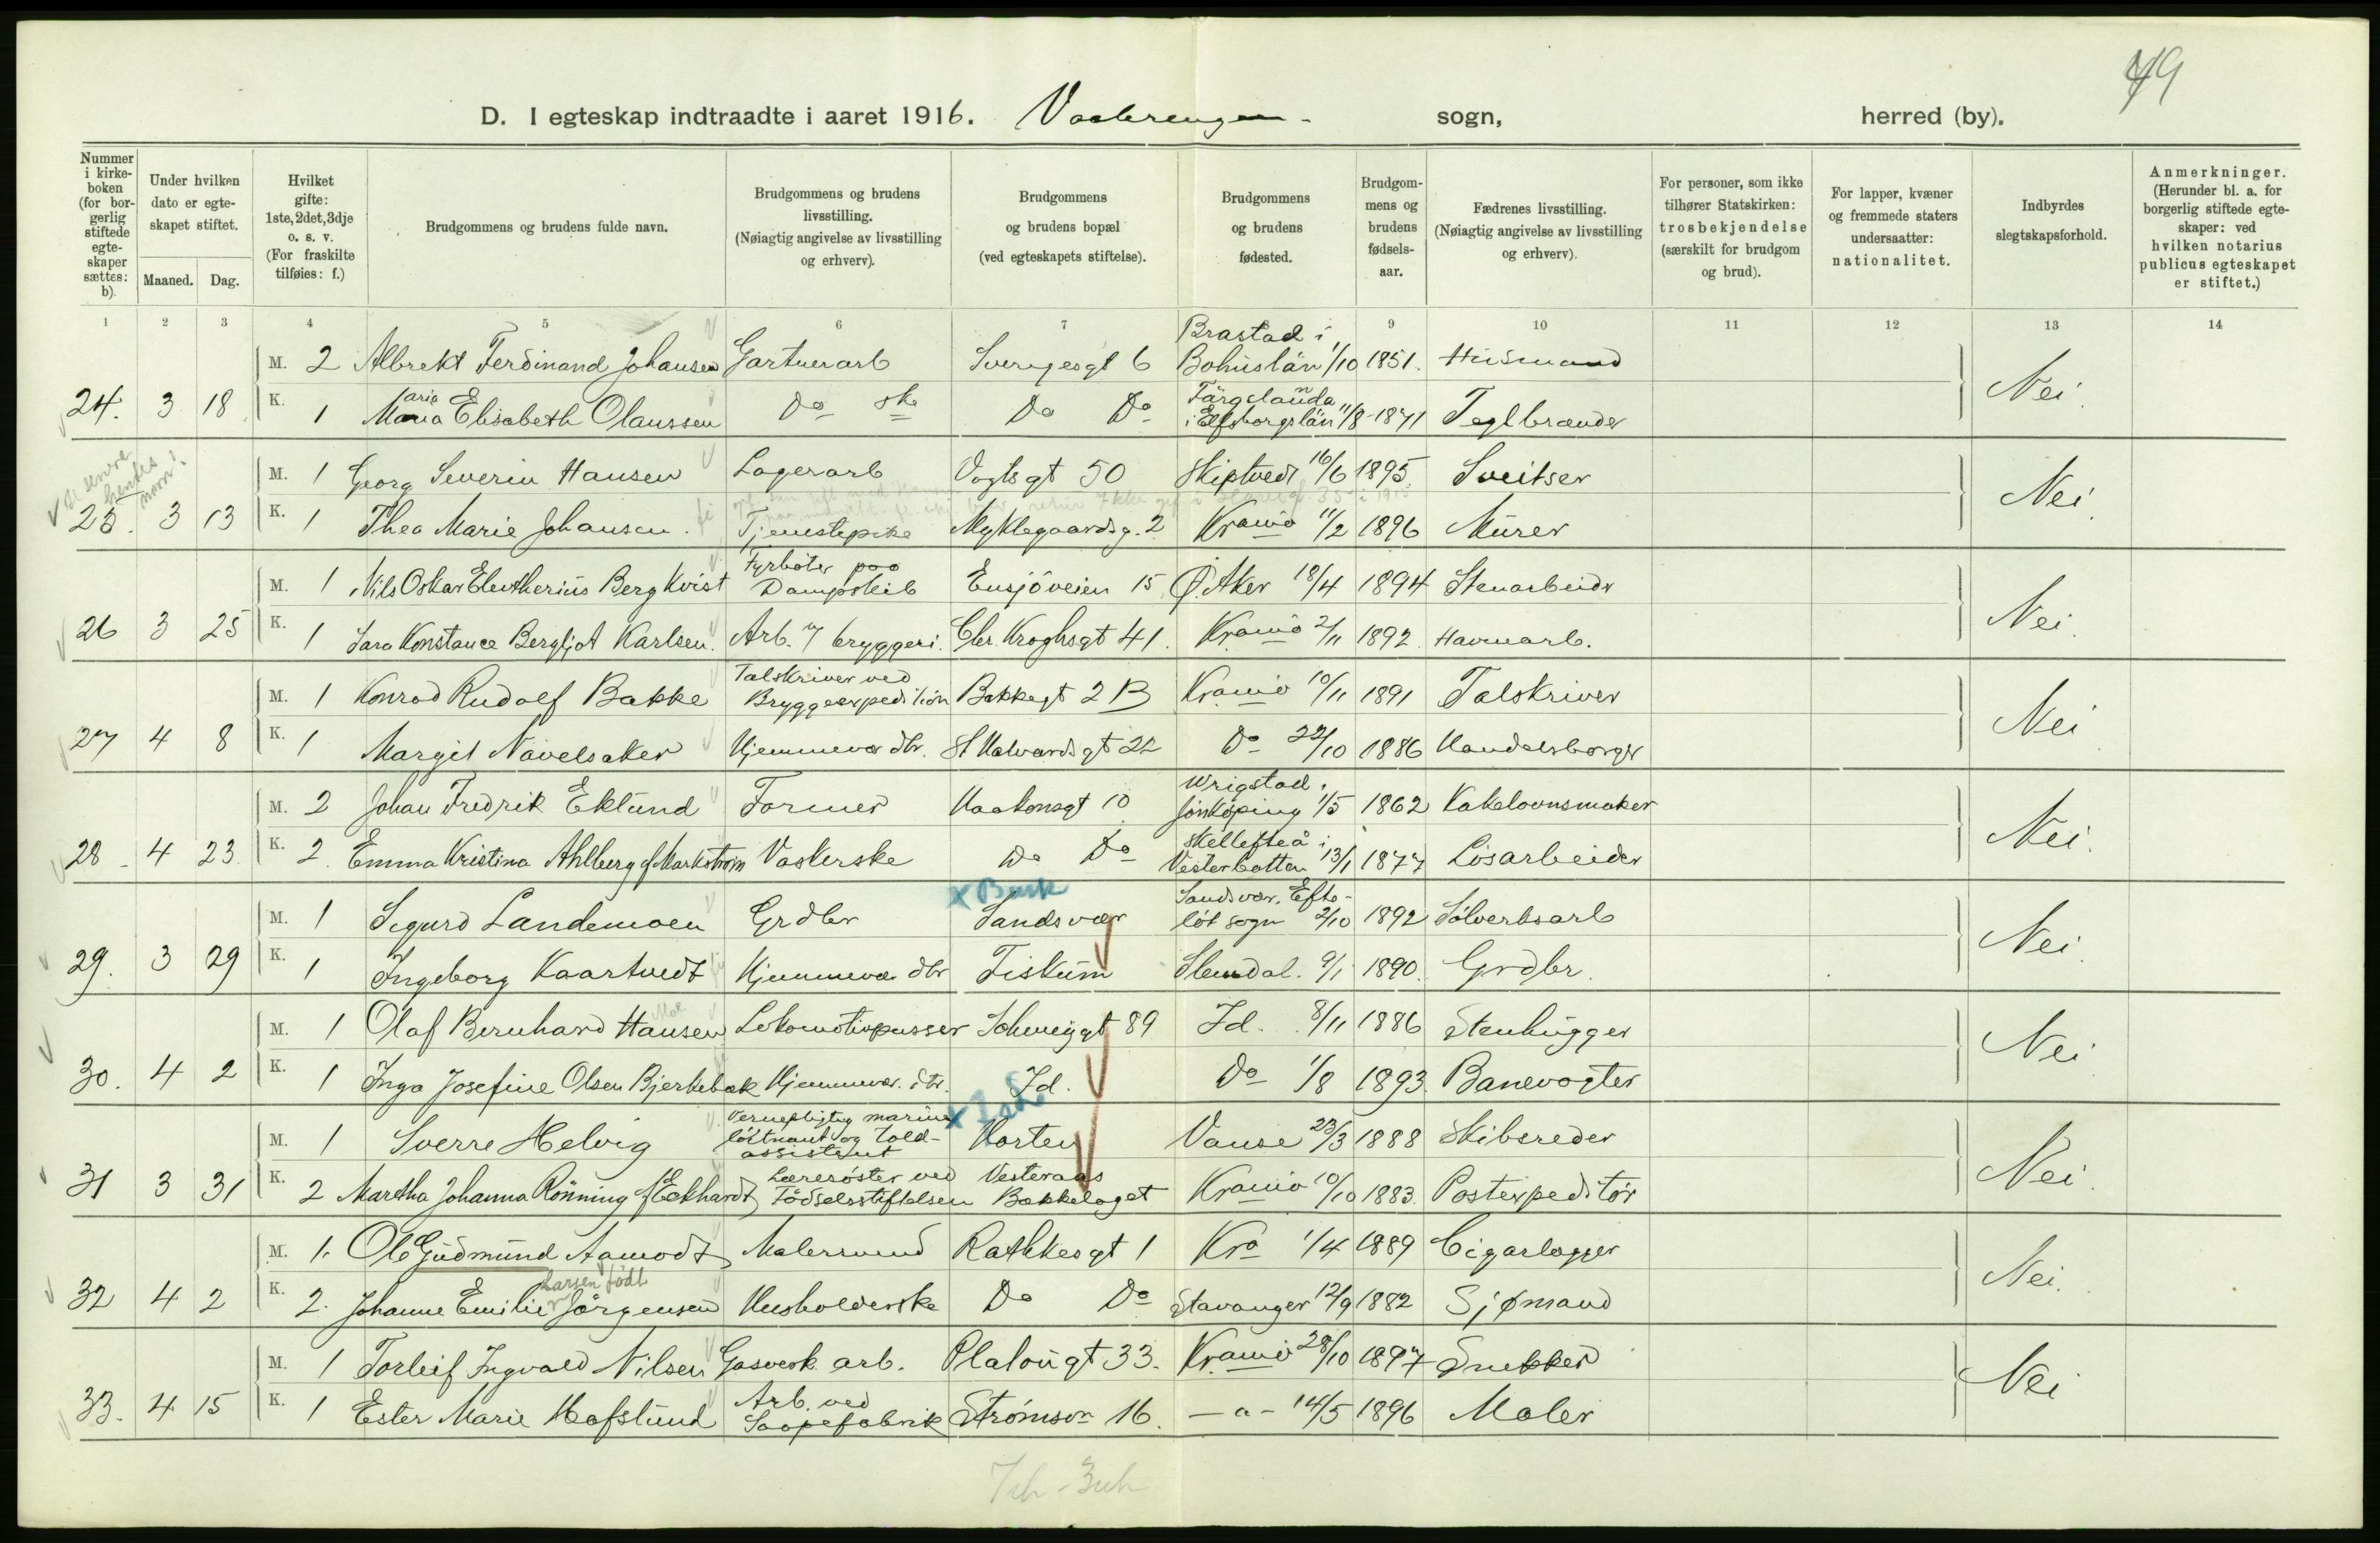 49
D. I egteskap indtraadte i aaret 1916. Vaalerengen sogn, herred (by).
Nummer i kirke-boken (for bor-gerlig stiftede egte-skaper sættes: b).
Under hvilken dato er egte-skapet stiftet.
Maaned. Dag.
Hvilket gifte: 1ste, 2det, 3dje o. s. v. (For fraskilte tilføies: f.)
Brudgommens og brudens fulde navn.
Brudgommens og brudens livsstilling. (Nøiagtig angivelse av livsstilling og erhverv).
Brudgommens og brudens bopæl (ved egteskapets stiftelse).
Brudgommens og brudens fødested.
Brudgom-mens og brudens fødsels-aar.
Fædrenes livsstilling. (Nøiagtig angivelse av livsstilling og erhverv).
For personer, som ikke tilhører Statskirken: trosbekjendelse (særskilt for brudgom og brud).
For lapper, kvæner og fremmede staters undersaatter: nationalitet.
Indbyrdes slegtskapsforhold.
Anmerkninger. (Herunder bl. a. for borgerlig stiftede egte-skaper: ved hvilken notarius publicus egteskapet er stiftet.)
1 2 3 4 5 6 7 9 10 11 12 13 14
M. 2 Albrekt Ferdinand Johansen Gartnerarb Sverigesgt 6 Brastad i Bohuslän 1/10 1851. Husmand
24. 3 18 K. 1 Maria Elisabeth Olaussen Do ske Do Do Färgelanda i Elfsborgslän 11/8 1871 Teglbrænder Nei.
M. 1 Georg Severin Hansen Lagerarb Vogtsgt 50 Skiptvedt 16/6 1895. Sveitser
25. 3 13 K. 1 Thea Marie Johansen. Tjenestepike Myklegaardsg. 2 Krania 11/2 1896 Murer Nei.
M. 1 Nils Oskar Eleutherius Bergkvist Fyrbøter paa Dampskib Ensjøveien 15 Ø. Aker 18/4 1894 Stenarbeider
26 3 25 K. 1 Sara Konstance Bergljot Karlsen. Arb. i bryggeri. Chr. Kroghsgt 41. Krania 2/11 1892. Havnearb. Nei.
M. 1 Konrad Rudolf Bakke Talskriver ved Bryggeexpedition Bakkegt 2 B Krania 10/11 1891 Talskriver
27 4 8 K. 1 Margit Navelsaker Hjemmevær. dtr. St Halvardsgt 22 Do 22/10 1886 Handelsborger Nei
M. 2 Johan Fredrik Eklund Former Haakonsgt 10 Wrigstad, Jönköping 1/5 1862 Kakelovnsmaker
28. 4 23. K. 2. Emma Kristina Ahlberg f. Markström Vaskerske Do Do Skellefteå i Vesterbotten 13/1 1877 Løsarbeider Nei.
x Busk
M. 1 Sigurd Landemoen Grdbr Sandsvær Sandsvær, Efte-løt sogn 2/10 1892 Sølverksarb
29. 3 29 K. 1 Ingeborg Kaartvedt Hjemmevær. dtr Fiskum Slemdal. 9/1 1890. Grdbr. Nei.
Moe
M. 1 Olaf Bernhard Hansen Lokomotivpusser Schweigt 89 Id. 8/11 1886 Stenhugger
30. 4 2 K. 1 Inga Josefine Olsen Bjerkebæk Hjemmevær. dtr. Id. Do 1/8 1893. Banevogter Nei
M. 1 Sverre Helvig Vernepligtig marine løitnant og Told-assistent Horten Vanse 23/3 1888 Skibsreder
31 3 31 K. 2 Martha Johanna Rønning f Eckhardt Fødselsstiftelsen Vesteraas Bækkelaget Krania 10/10 1883. Postexpeditør Nei.
M. 1. Ole Gudmund Aamodt Malersvend Rathkesgt 1 Kra 1/4 1889 Cigarlægger
Larsen født
32 4 2 K. 2. Johanne Emilie Jørgensen Husholderske Do Do Stavanger 12/9 1882 Sjømand Nei.
M. 1 Torleif Ingvald Nilsen Gasverk arb. Platougt 33. Krania 28/10 1897 Snekker
33. 4 15 K. 1 Ester Marie Hafslund Arb. ved Saapefabrik Strømsv 16. - a - 14/5 1896 Maler Nei